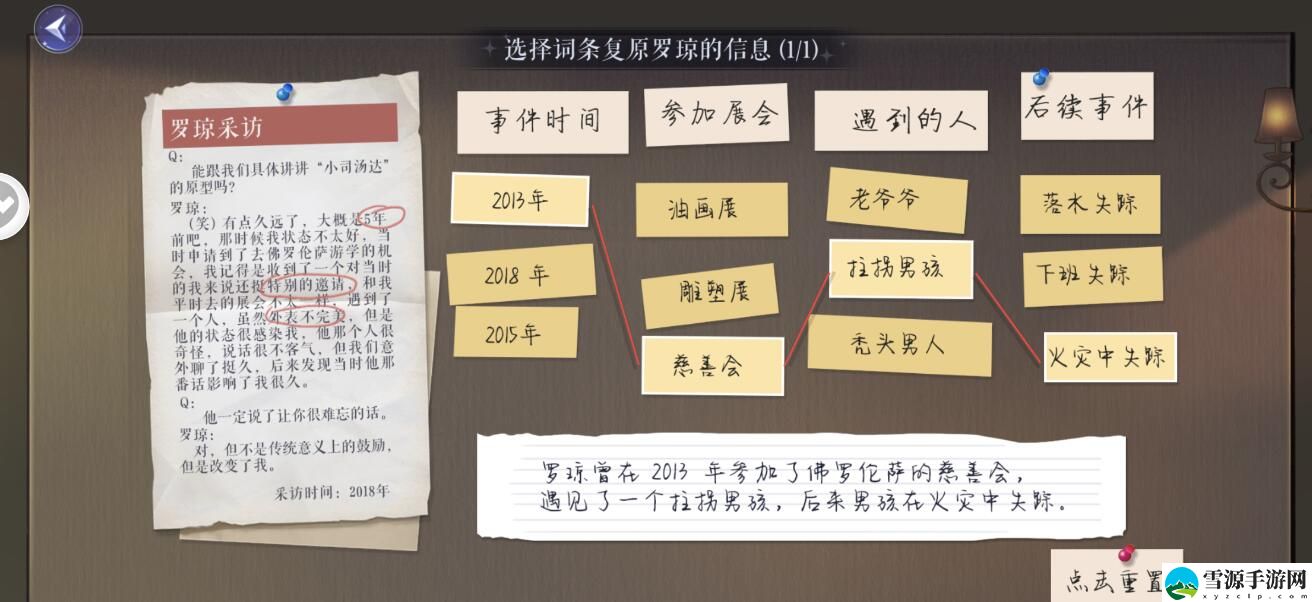 选择词条复原罗琼的信息 (1/1)
罗琼采访
Q:
能跟我们具体讲讲“小司汤达”
的原型吗?
罗琼:
(笑) 有点久远了, 大概是5年
前吧, 那时候我状态不太好, 当
时申请到了去佛罗伦萨游学的机
会, 我记得是收到了一个对当时
的我来说还挺特别的邀请, 和我
平时去的展会不太一样, 遇到了
一个人, 虽然外表不完美, 但是
他的状态很感染我, 他那个人很
奇怪, 说话很不客气, 但我们意
外聊了挺久, 后来发现当时他那
番话影响了我很久。
Q:
他一定说了让你很难忘的话。
罗琼:
对, 但不是传统意义上的鼓励,
但是改变了我。
采访时间: 2018年
事件时间
参加展会
遇到的人
后续事件
2013年
油画展
老爷爷
落水失踪
2018 年
雕塑展
拄拐男孩
下班失踪
2015年
慈善会
秃头男人
火灾中失踪
罗琼曾在 2013 年参加了佛罗伦萨的慈善会,
遇见了一个拄拐男孩, 后来男孩在火灾中失踪。
点击重置
雪源手游网
xyzclp.com